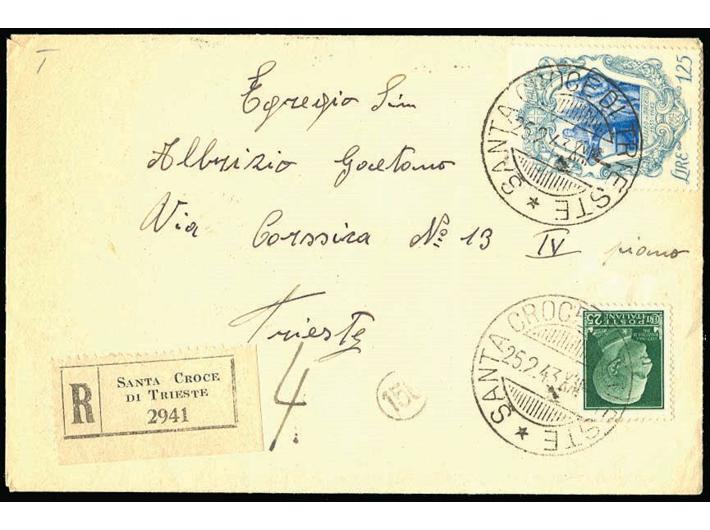 T
Egregio Sim
Albrizio Gaetano
Via Corssira No 13 IV piano
Trieste
4.
R
SANTA CROCE
DI TRIESTE
2941
150
LIRE 1,25
SANTA CROCE DI TRIESTE
25.2.43 XXI
POSTE ITALIANE
CENT 25
SANTA CROCE DI TRIESTE
25.2.43 XXI